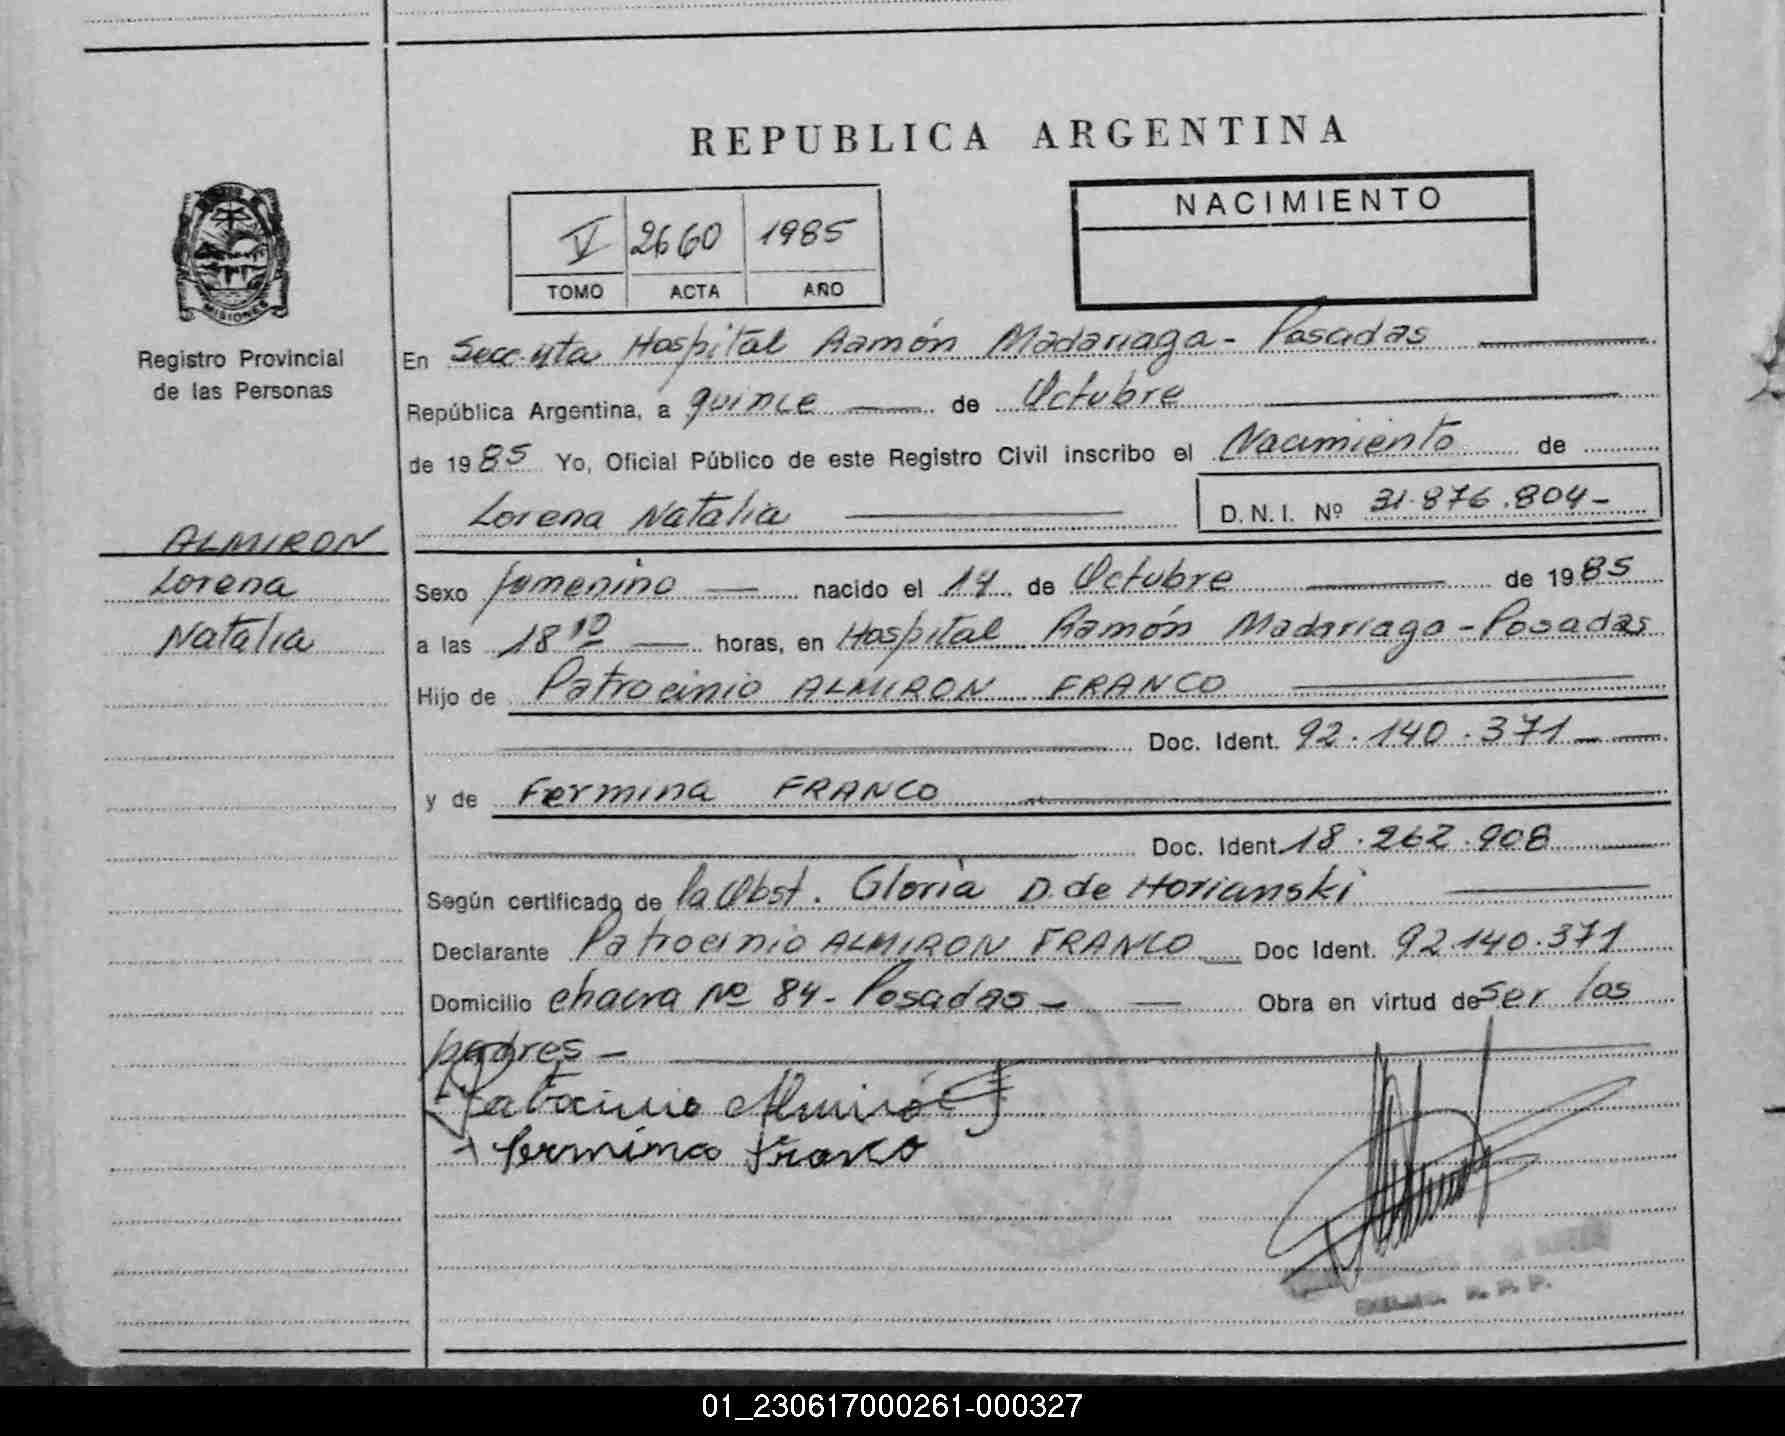 REPUBLICA ARGENTINA
NACIMIENTO
V 2660 1985
TOMO ACTA AÑO
MISIONES
Registro Provincial
de las Personas
En Secc. 4ta Hospital Ramón Madariaga - Posadas
República Argentina, a quince de Octubre
de 1985 Yo, Oficial Público de este Registro Civil inscribo el Nacimiento de
Lorena Natalia D.N.I. Nº 31.876.804-
ALMIRON
Lorena
Natalia
Sexo femenino nacido el 14 de Octubre de 1985
a las 18 10 horas, en Hospital Ramón Madariaga - Posadas
Hijo de Patrocinio ALMIRON FRANCO
Doc. Ident. 92.140.371
y de Fermina FRANCO
Doc. Ident. 18.262.908
Según certificado de la Obst. Gloria D. de Horianski
Declarante Patrocinio ALMIRON FRANCO Doc Ident. 92.140.371
Domicilio chacra Nº 84 - Posadas - Obra en virtud de ser los
padres -
Patrocinio Almirón F
Fermina Franco
01_230617000261-000327